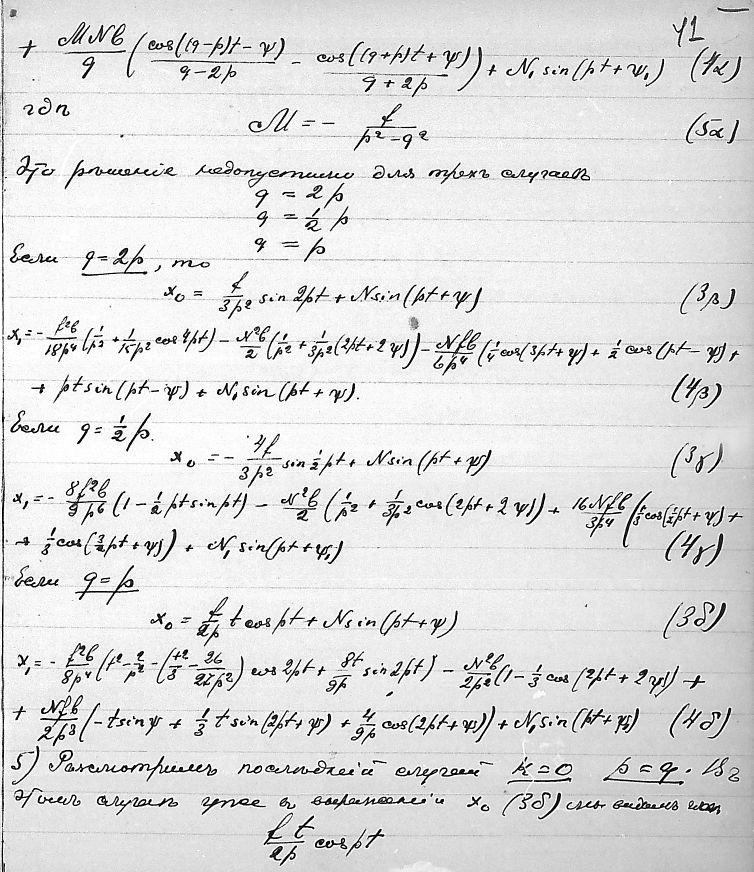 41
+ MNb/q (cos((q-p)t-ψ)/(q-2p) - cos((q+p)t+ψ)/(q+2p)) + N₁ sin(pt+ψ₁) (4α)
гдѣ
M = - f/(p²-q²) (5α)
Это рѣшеніе недопустимо для трехъ случаевъ
q = 2p
q = ½ p
q = p
Если q=2p, то
x₀ = f/3p² sin 2pt + N sin(pt+ψ) (3β)
x₁ = - f²b/18p⁴ (1/p² + 1/15p² cos 4pt) - N²b/2 (1/p² + 1/3p² (2pt+2ψ)) - Nfb/6p⁴ (¼ cos(3pt+ψ) + ½ cos(pt-ψ) +
+ pt sin(pt-ψ) + N₁ sin(pt+ψ). (4β)
Если q = ½ p.
x₀ = - 4f/3p² sin ½pt + N sin(pt+ψ) (3γ)
x₁ = - 8f²b/9p⁶ (1 - ½ pt sin pt) - N²b/2 (1/p² + 1/3p² cos(2pt+2ψ)) + 16Nfb/3p⁴ (⅓ cos(½pt+ψ) +
+ ⅓ cos(3/2 pt+ψ)) + N₁ sin(pt+ψ₁) (4γ)
Если q=p
x₀ = f/2p t cos pt + N sin(pt+ψ) (3δ)
x₁ = - f²b/8p⁴ (t² - 2/p² - (t²/3 - 26/27p²) cos 2pt + 8t/9p sin 2pt) - N²b/2p² (1 - ⅓ cos(2pt+2ψ)) +
+ Nfb/2p³ (-t sin ψ + ⅓ t sin(2pt+ψ) + 4/9p cos(2pt+ψ)) + N₁ sin(pt+ψ₁) (4δ)
5) Разсмотримъ послѣдній случай k=0 p=q. Въ
этомъ случаѣ уже въ выраженіи x₀ (3δ) мы видимъ членъ
ft/2p cos pt